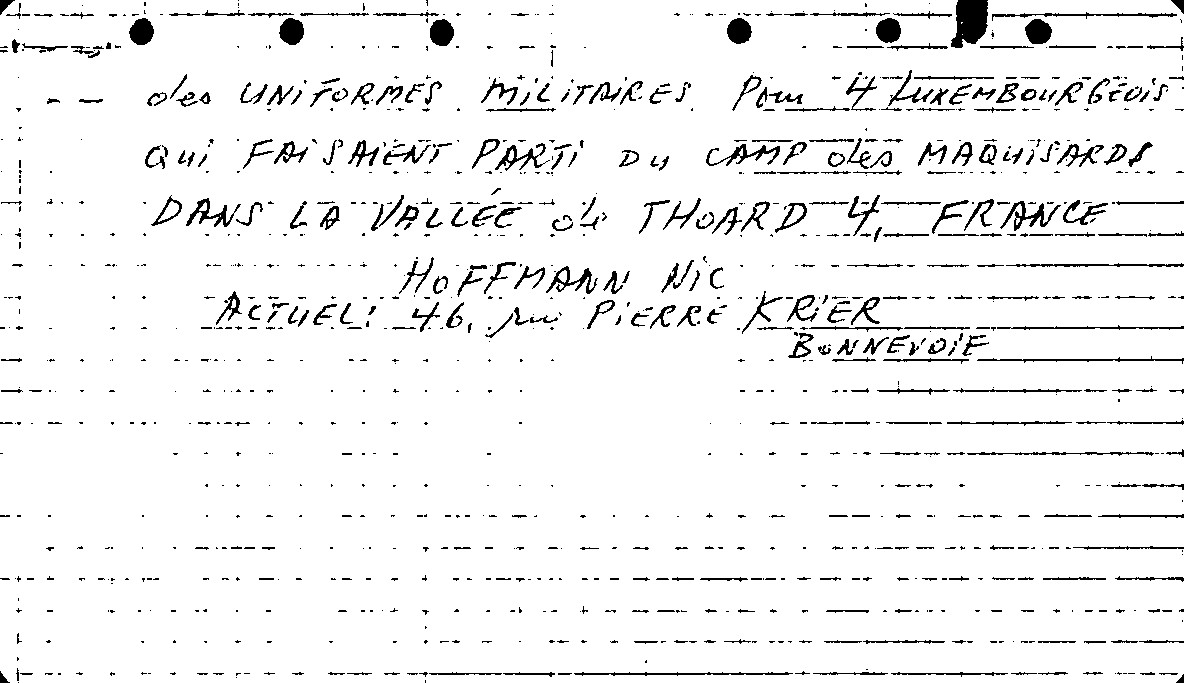 -- des UNIFORMES MILITAIRES Pour 4 LUXEMBOURGEOIS
QUI FAISAIENT PARTI DU CAMP des MAQUISARDS
DANS LA VALLÉE de THOARD 4, FRANCE
HOFFMANN NIC
ACTUEL: 46, rue PIERRE KRIER
BONNEVOIE